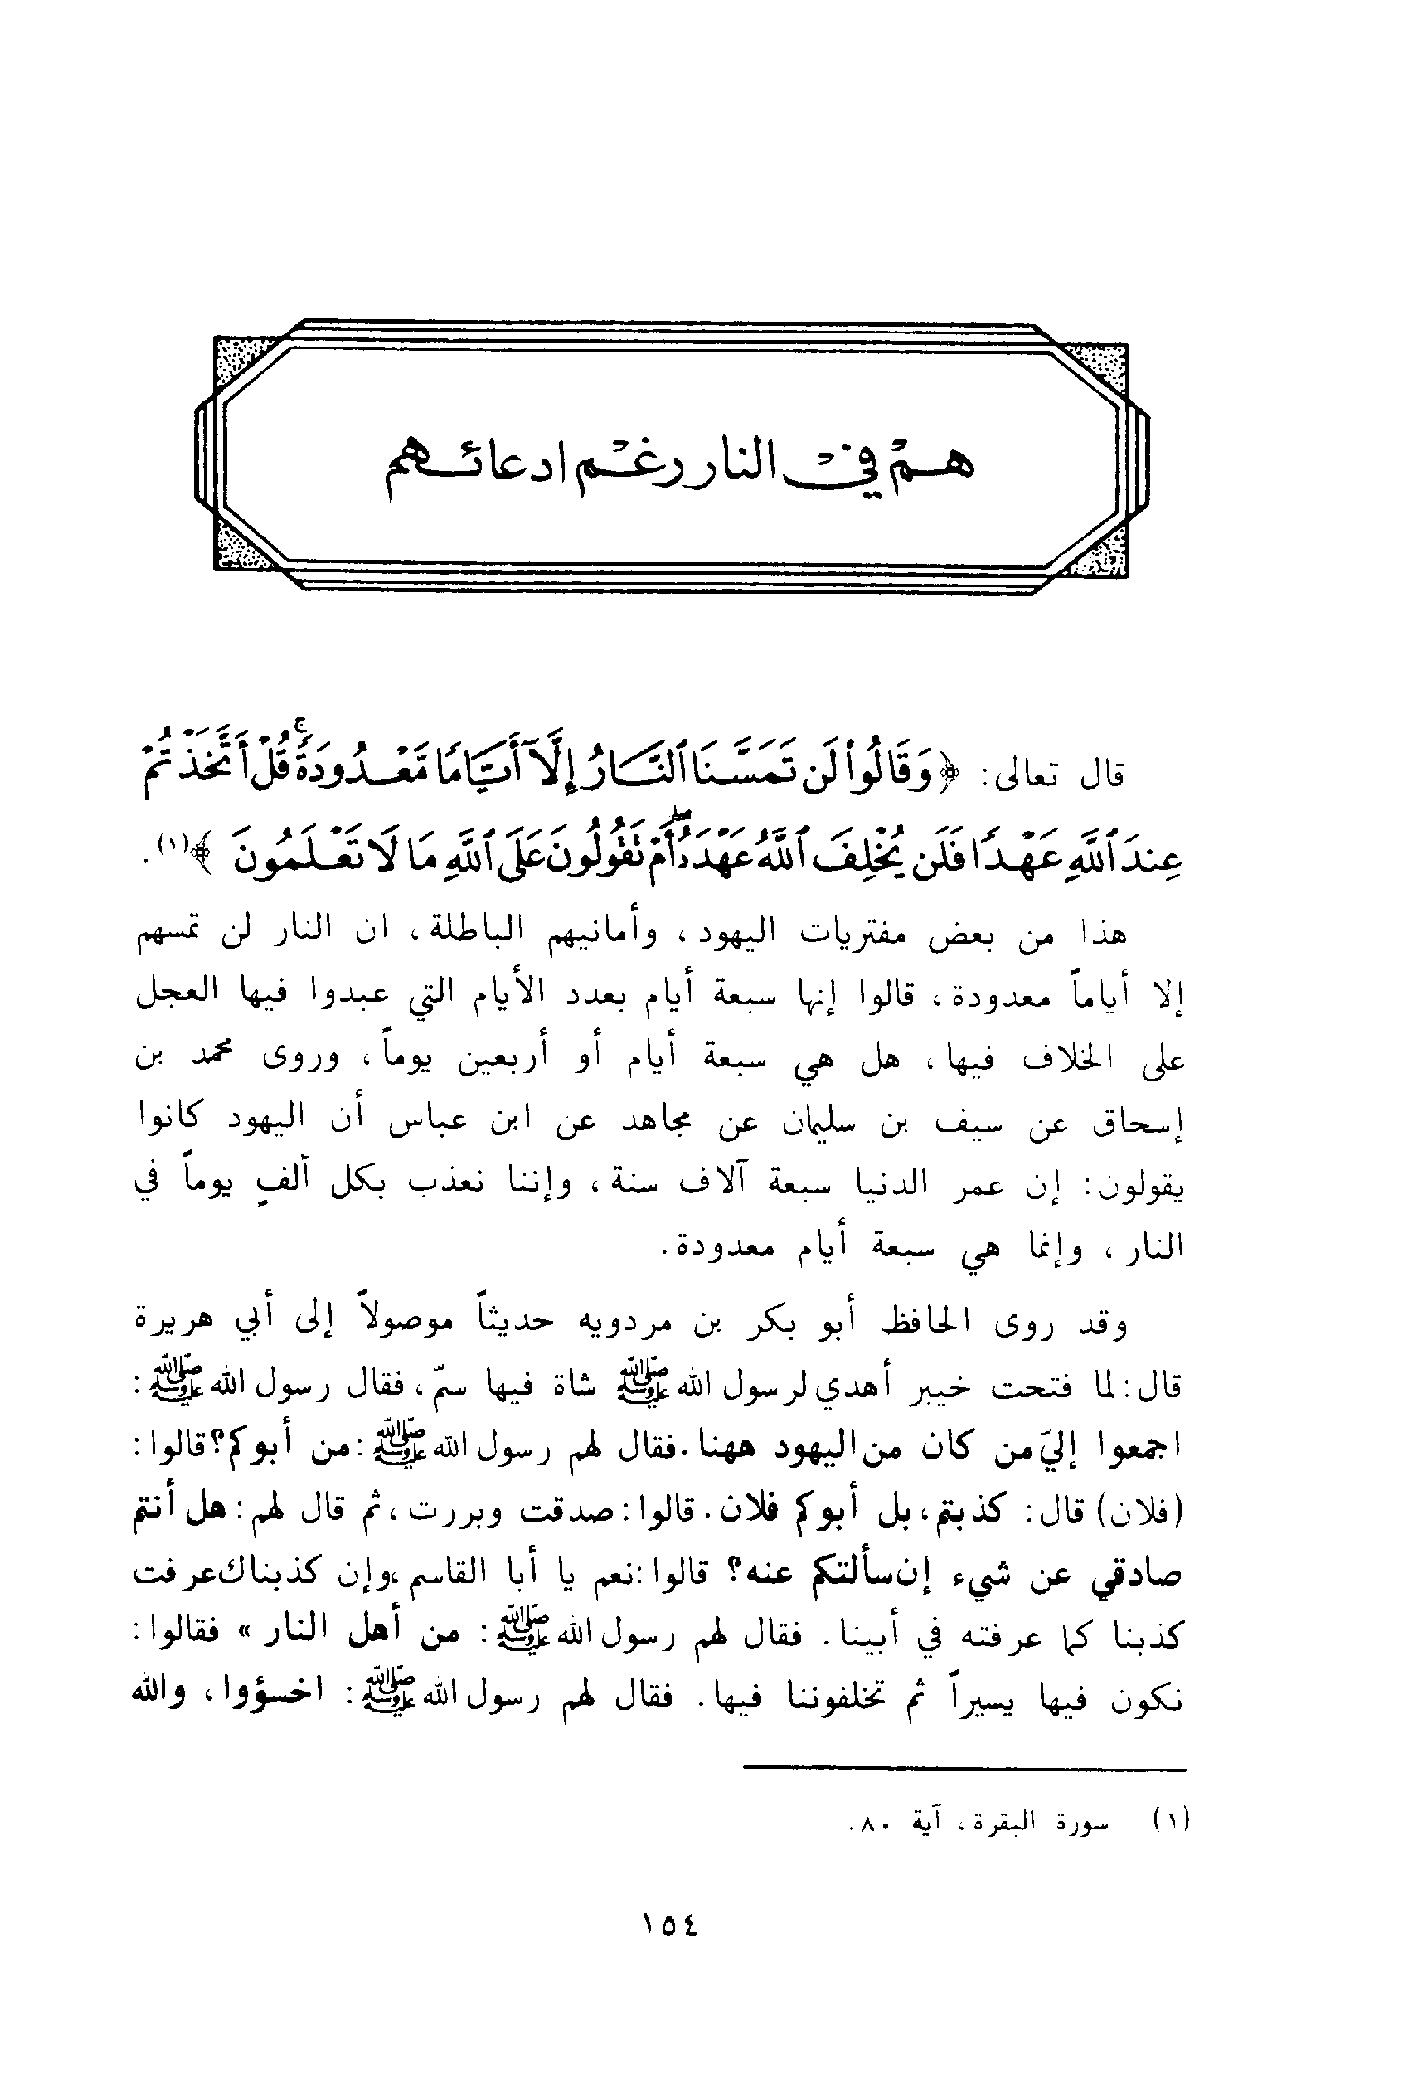 هم في النار رغم ادعائهم
قال تعالى: ﴿وَقَالُوا۟ لَن تَمَسَّنَا ٱلنَّارُ إِلَّآ أَيَّامًا مَّعْدُودَةً ۚ قُلْ أَتَّخَذْتُمْ
عِندَ ٱللَّهِ عَهْدًا فَلَن يُخْلِفَ ٱللَّهُ عَهْدَهُۥٓ ۖ أَمْ نَقُولُونَ عَلَى ٱللَّهِ مَا لَا تَعْلَمُونَ ﴾(١).
هذا من بعض مفتريات اليهود، وأمانيهم الباطلة، ان النار لن تمسهم
إلا أياماً معدودة، قالوا إنها سبعة أيام بعدد الأيام التي عبدوا فيها العجل
على الخلاف فيها، هل هي سبعة أيام أو أربعين يوماً، وروى محمد بن
إسحاق عن سيف بن سليمان عن مجاهد عن ابن عباس أن اليهود كانوا
يقولون: إن عمر الدنيا سبعة آلاف سنة، وإننا نعذب بكل ألفٍ يوماً في
النار، وإنما هي سبعة أيام معدودة.
وقد روى الحافظ أبو بكر بن مردويه حديثاً موصولاً إلى أبي هريرة
قال: لما فتحت خيبر أهدي لرسول الله ﷺ شاة فيها سمّ، فقال رسول الله ﷺ:
اجمعوا إليّ من كان من اليهود ههنا. فقال لهم رسول الله ﷺ: من أبوكم؟ قالوا:
(فلان) قال: كذبتم، بل أبوكم فلان. قالوا: صدقت وبررت، ثم قال لهم: هل أنتم
صادقي عن شيء إن سألتكم عنه؟ قالوا: نعم يا أبا القاسم، وإن كذبناك عرفت
كذبنا كما عرفته في أبينا. فقال لهم رسول الله ﷺ: من أهل النار » فقالوا:
نكون فيها يسيراً ثم تخلفوننا فيها. فقال لهم رسول الله ﷺ: اخسؤوا، والله
(١) سورة البقرة، آية ٨٠.
١٥٤